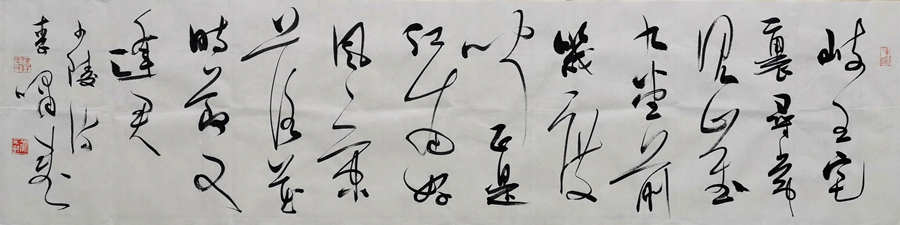 岐王宅
裏尋常
見崔
九堂前
幾度
聞正是
江南好
風景
落花
時節又
逢君
少陵詩
李